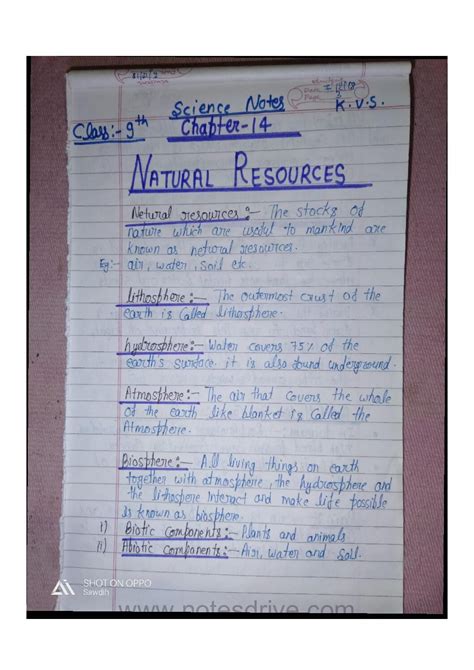 Science Notes
K.V.S.
Class:- 9th
Chapter-14
NATURAL RESOURCES
Netural resources:- The stocks of
nature which are useful to mankind are
known as netural resources.
Eg:- air, water, soil etc.
lithosphere:- The outermost crust of the
earth is called lithosphere.
hydrosphere:- Water covers 75% of the
earth's surface. it is also found underground.
Atmosphere:- The air that covers the whole
of the earth like blanket is called the
Atmosphere.
Biosphere:- All living things on earth
together with atmosphere, the hydrosphere and
the lithosphere interact and make life possible
is known as biosphere.
i) Biotic Components:- Plants and animals
ii) Abiotic Components:- Air, water and soil.
SHOT ON OPPO
Sawdih
www.notesdrive.com